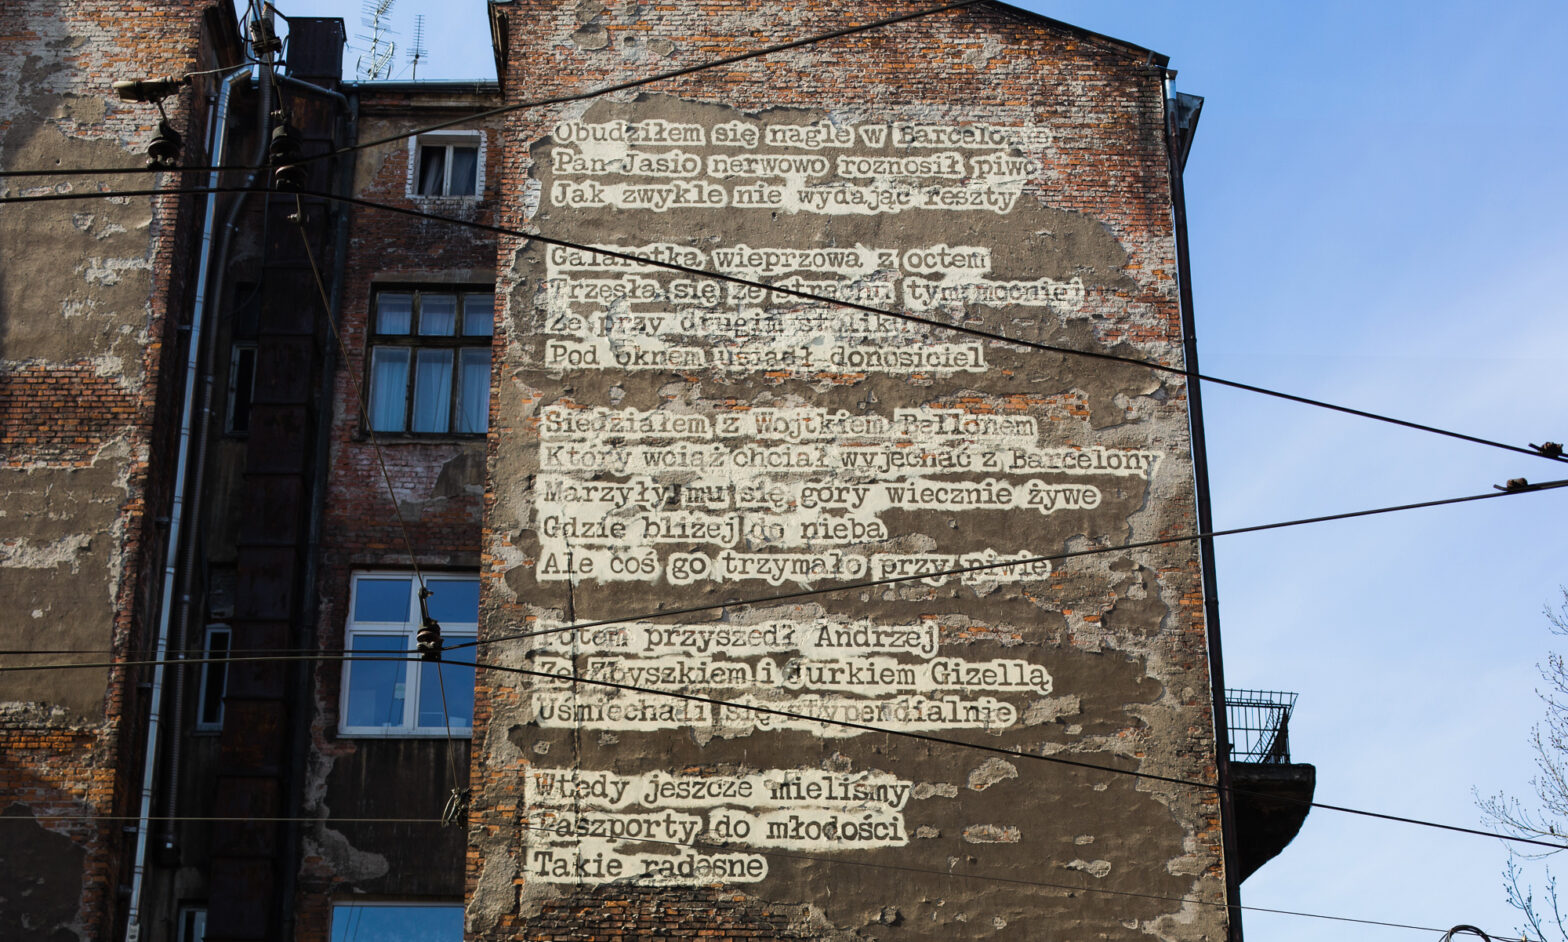 Obudziłem się nagle w Barcelonie
Pan Jasio nerwowo roznosił piwo
Jak zwykle nie wydając reszty
Galaretka wieprzowa z octem
Trzęsła się ze strachu tym mocniej
Że przy drugim stoliku
Pod oknem usiadł donosiciel
Siedziałem z Wojtkiem Bellonem
Który wciąż chciał wyjechać z Barcelony
Marzyły mu się góry wiecznie żywe
Gdzie bliżej do nieba
Ale coś go trzymało przy
Potem przyszedł Andrzej
Ze Zbyszkiem i Jurkiem Gizella
Uśmiechali się stypendialnie
Wtedy jeszcze mieliśmy
Paszporty do młodości
Takie radosne